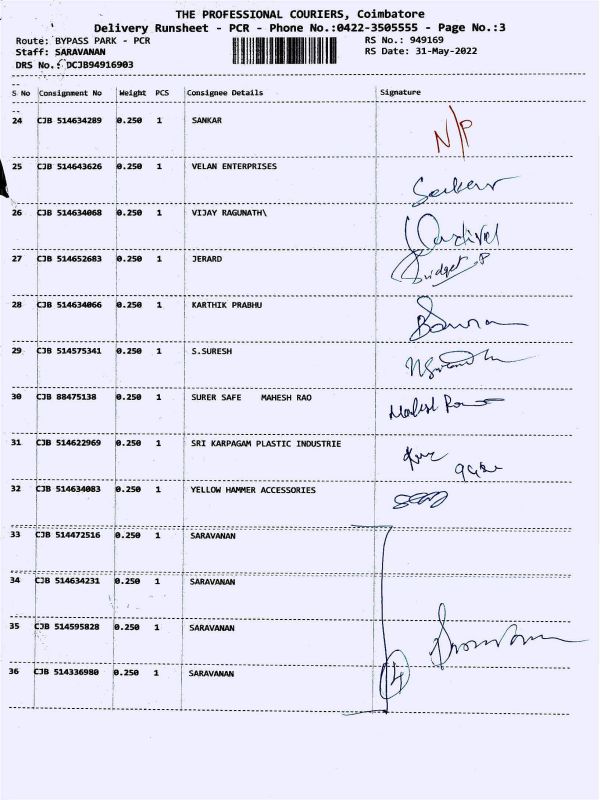 THE PROFESSIONAL COURIERS, Coimbatore
Delivery Runsheet - PCR - Phone No.:0422-3505555 - Page No.:3
Route: BYPASS PARK - PCR RS No.: 949169
Staff: SARAVANAN RS Date: 31-May-2022
DRS No.: DCJB94916903
S No Consignment No Weight PCS Consignee Details Signature
24 CJB 514634289 0.250 1 SANKAR N/P
25 CJB 514643626 0.250 1 VELAN ENTERPRISES
26 CJB 514634068 0.250 1 VIJAY RAGUNATH\
27 CJB 514652683 0.250 1 JERARD Bridget.P
28 CJB 514634066 0.250 1 KARTHIK PRABHU
29 CJB 514575341 0.250 1 S.SURESH
30 CJB 88475138 0.250 1 SURER SAFE MAHESH RAO Mahesh Rao
31 CJB 514622969 0.250 1 SRI KARPAGAM PLASTIC INDUSTRIE
32 CJB 514634083 0.250 1 YELLOW HAMMER ACCESSORIES
33 CJB 514472516 0.250 1 SARAVANAN
34 CJB 514634231 0.250 1 SARAVANAN
35 CJB 514595828 0.250 1 SARAVANAN
36 CJB 514336980 0.250 1 SARAVANAN 4